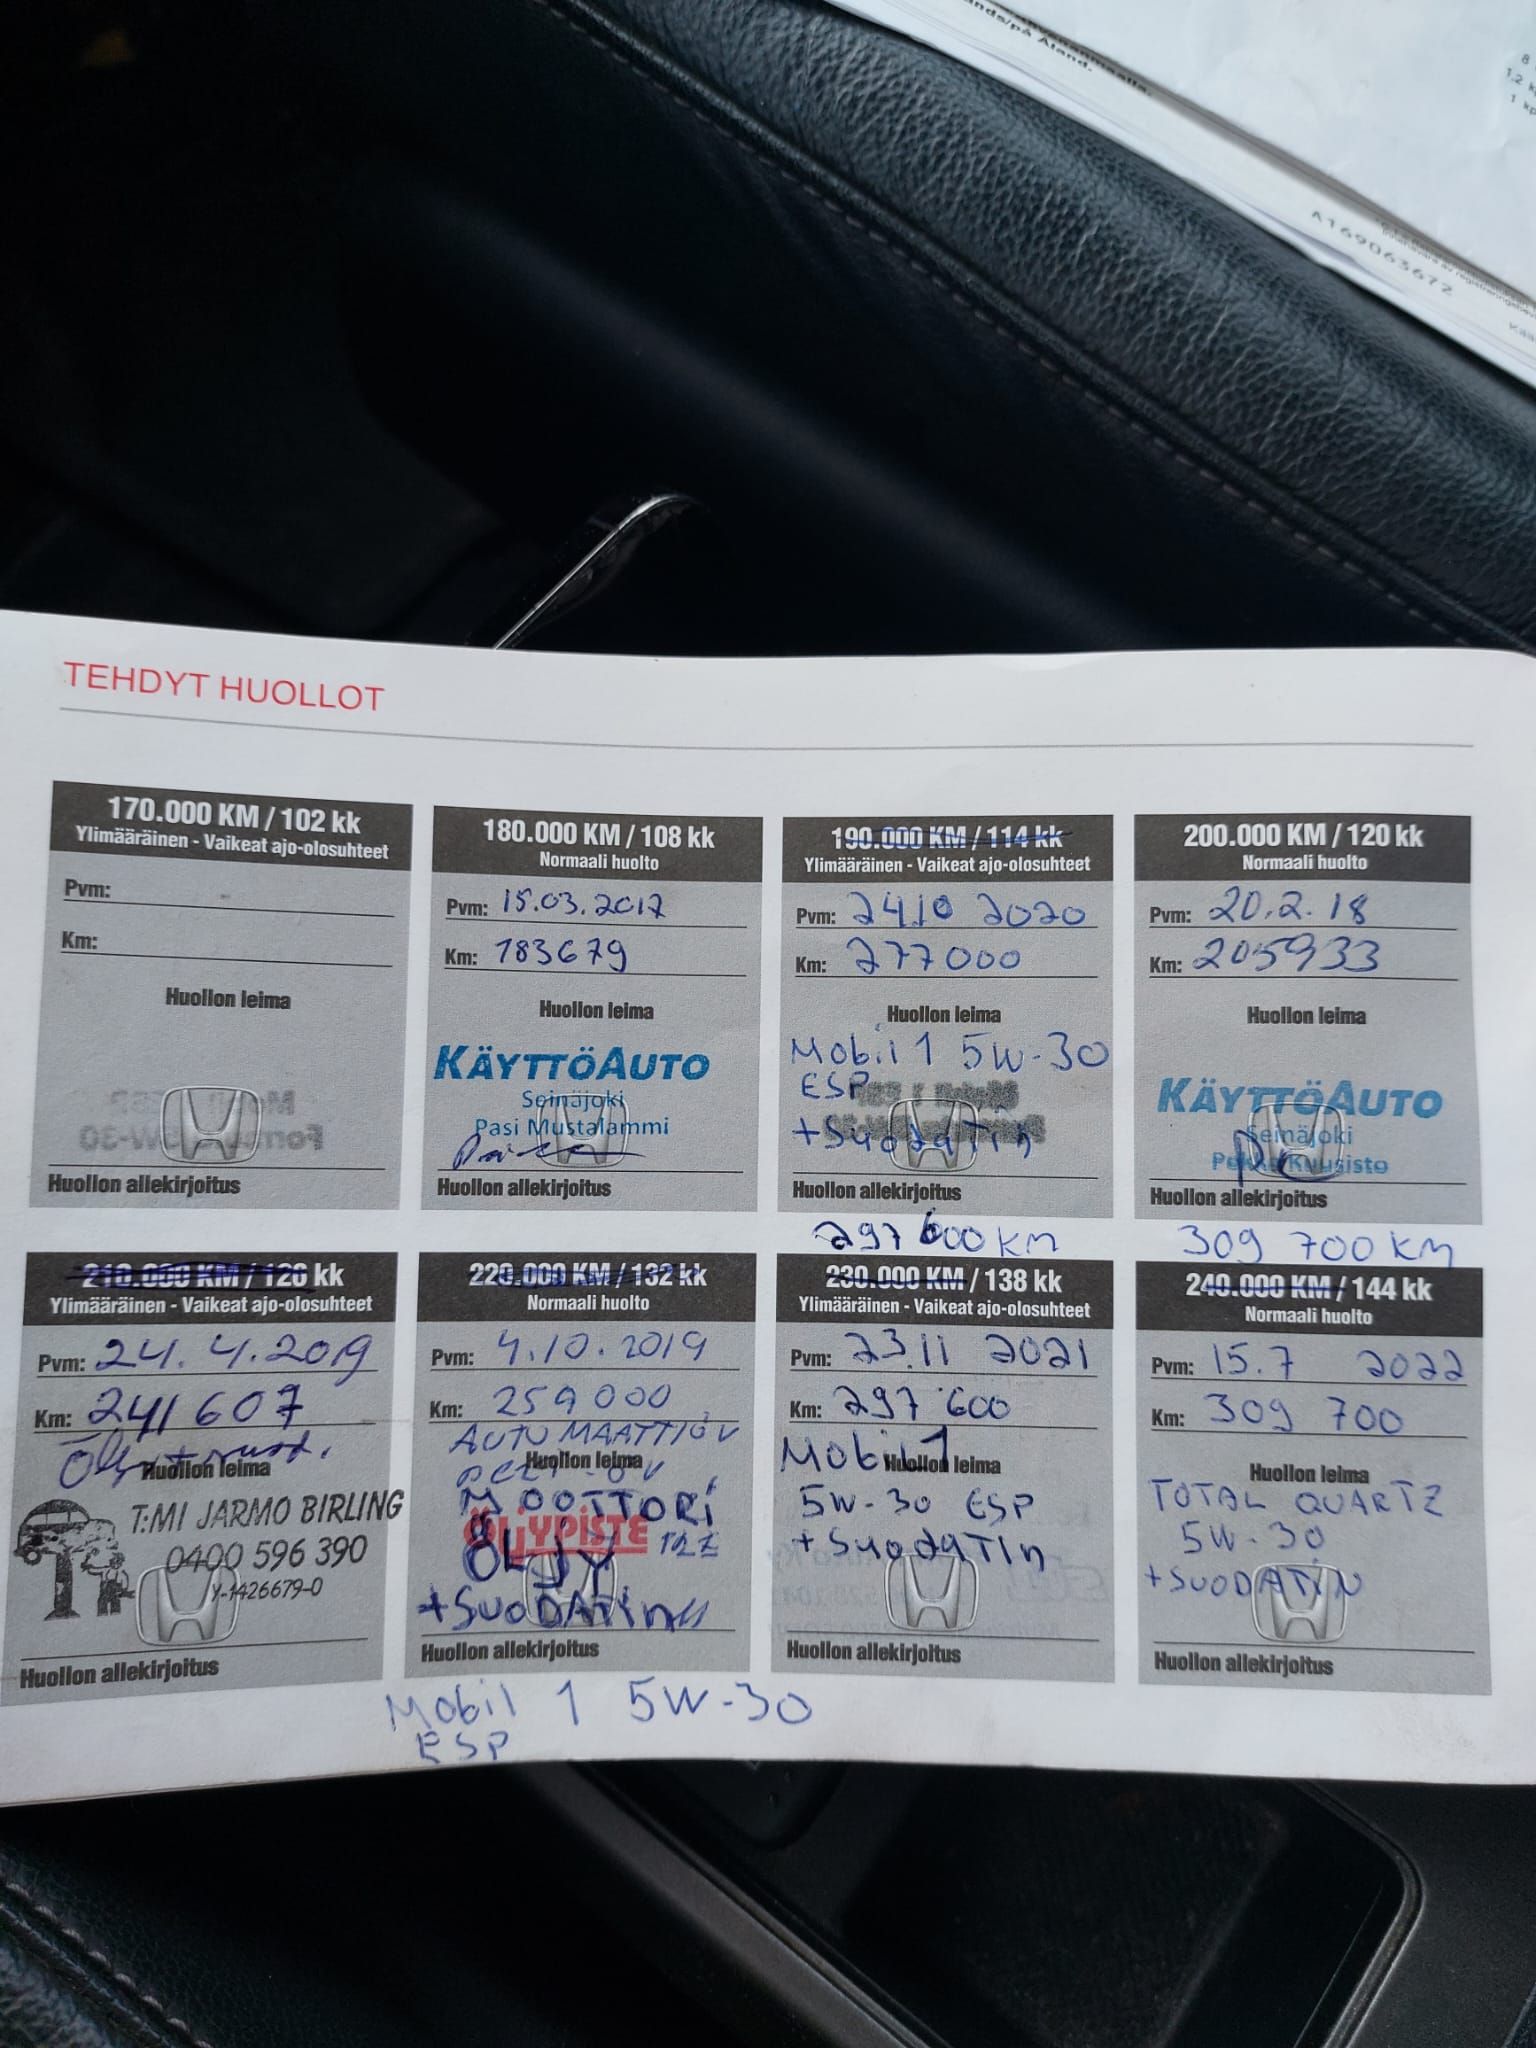 ands/på Åland.
A169063672
TEHDYT HUOLLOT
170.000 KM / 102 kk
Ylimääräinen - Vaikeat ajo-olosuhteet
Pvm:
Km:
Huollon leima
Huollon allekirjoitus
180.000 KM / 108 kk
Normaali huolto
Pvm: 15.03.2017
Km: 183679
Huollon leima
KÄYTTÖAUTO
Seinäjoki
Pasi Mustalammi
Huollon allekirjoitus
190.000 KM / 114 kk
Ylimääräinen - Vaikeat ajo-olosuhteet
Pvm: 24.10 2020
Km: 277000
Huollon leima
Mobil 1 5W-30
ESP
+Suodatin
Huollon allekirjoitus
200.000 KM / 120 kk
Normaali huolto
Pvm: 20.2.18
Km: 205933
Huollon leima
KÄYTTÖAUTO
Seinäjoki
Pekka Kuusisto
Huollon allekirjoitus
210.000 KM / 126 kk
Ylimääräinen - Vaikeat ajo-olosuhteet
Pvm: 24.4.2019
Km: 241607
Huollon leima
T:MI JARMO BIRLING
0400 596 390
Y-1426679-0
Huollon allekirjoitus
220.000 KM / 132 kk
Normaali huolto
Pvm: 4.10.2019
Km: 259000
AUTOMAATTIÖV
Huollon leima
MOOTTORi
ÖLJYPISTE
ÖLJY
+SUODATin
Huollon allekirjoitus
Mobil 1 5W-30
ESP
297600 KM
230.000 KM / 138 kk
Ylimääräinen - Vaikeat ajo-olosuhteet
Pvm: 23.11 2021
Km: 297600
Mobil 1
Huollon leima
5W-30 ESP
+Suodatin
Huollon allekirjoitus
309 700 KM
240.000 KM / 144 kk
Normaali huolto
Pvm: 15.7 2022
Km: 309 700
Huollon leima
TOTAL QUARTZ
5W-30
+SUODATiN
Huollon allekirjoitus